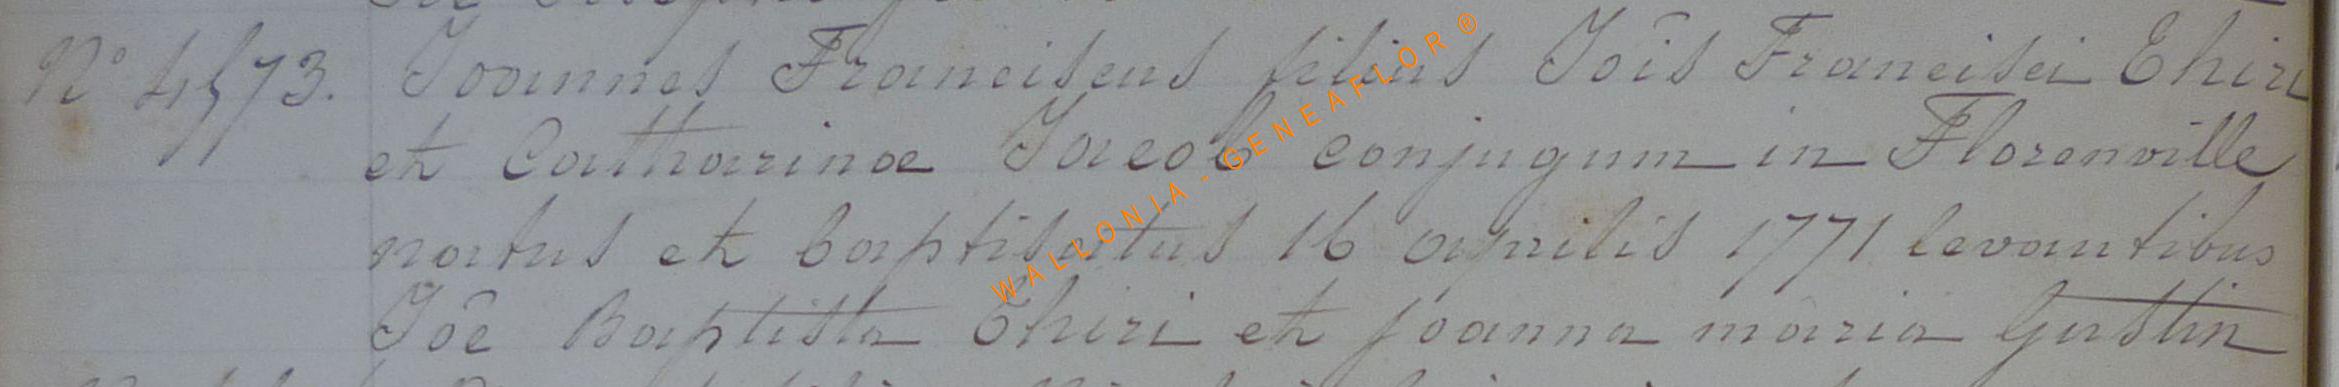 N° 4573. Joannes Franciscus filius Joîs Francisci Thiri
et Catharinæ Jacob conjugum in Florenville
natus et baptisatus 16 aprilis 1771 levantibus
Joê Baptista Thiri et Joanna maria Gustin
WALLONIA - GENEAFLOR ®